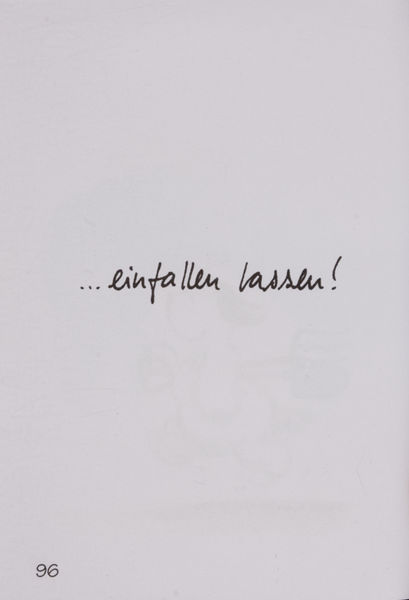 ... einfallen lassen!
96